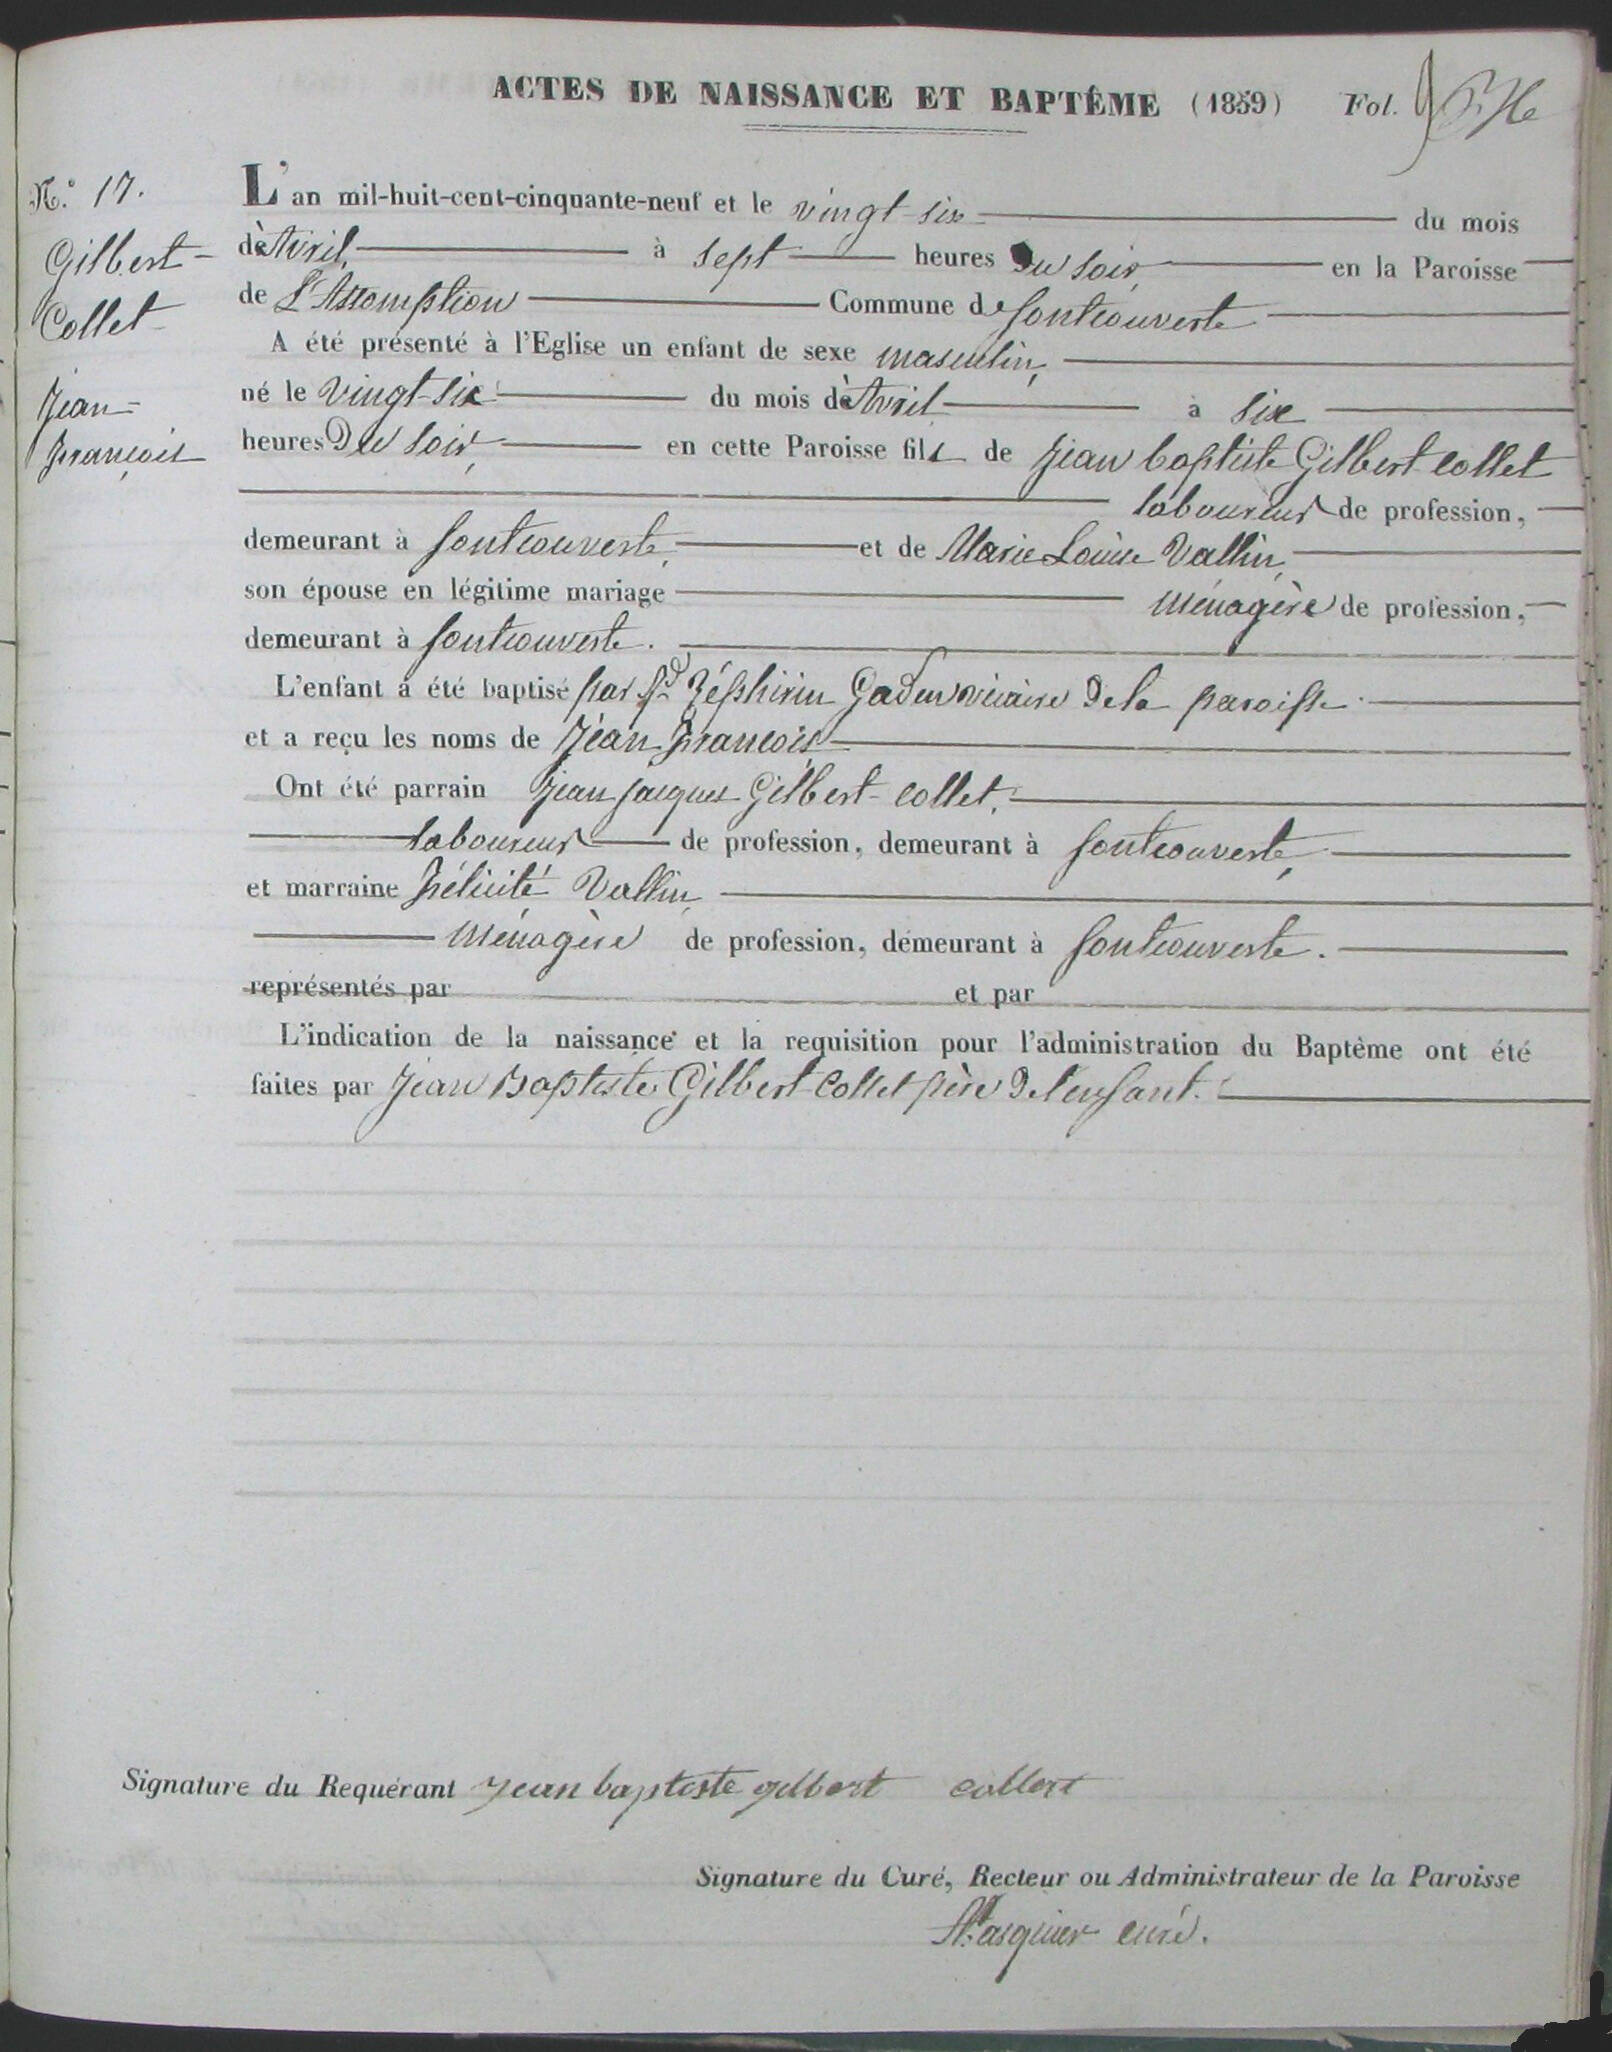 ACTES DE NAISSANCE ET BAPTÊME (1859) Fol. 9
N.º 17.
Gilbert-
Collet
Jean-
François
L'an mil-huit-cent-cinquante-neuf et le vingt-six du mois
d'Avril, à sept heures Du soir, en la Paroisse
de L'Assomption Commune de fontcouverte
A été présenté à l'Eglise un enfant de sexe masculin,
né le vingt-six du mois d'Avril à six
heures Du soir, en cette Paroisse fils de Jean baptiste Gilbert collet
laboureur de profession,
demeurant à fontcouverte, et de Marie Louise Vallin,
son épouse en légitime mariage ménagère de profession,
demeurant à fontcouverte.
L'enfant a été baptisé par Rd Zéphirin Gadin vicaire De la paroisse.
et a reçu les noms de Jean François
Ont été parrain Jean Jacques Gilbert-collet,
laboureur de profession, demeurant à fontcouverte,
et marraine Félicité Vallin,
ménagère de profession, demeurant à fontcouverte.
représentés par et par
L'indication de la naissance et la requisition pour l'administration du Baptême ont été
faites par Jean Baptiste Gilbert Collet père De l'enfant.
Signature du Requérant jean baptiste gilbert collert
Signature du Curé, Recteur ou Administrateur de la Paroisse
curé.